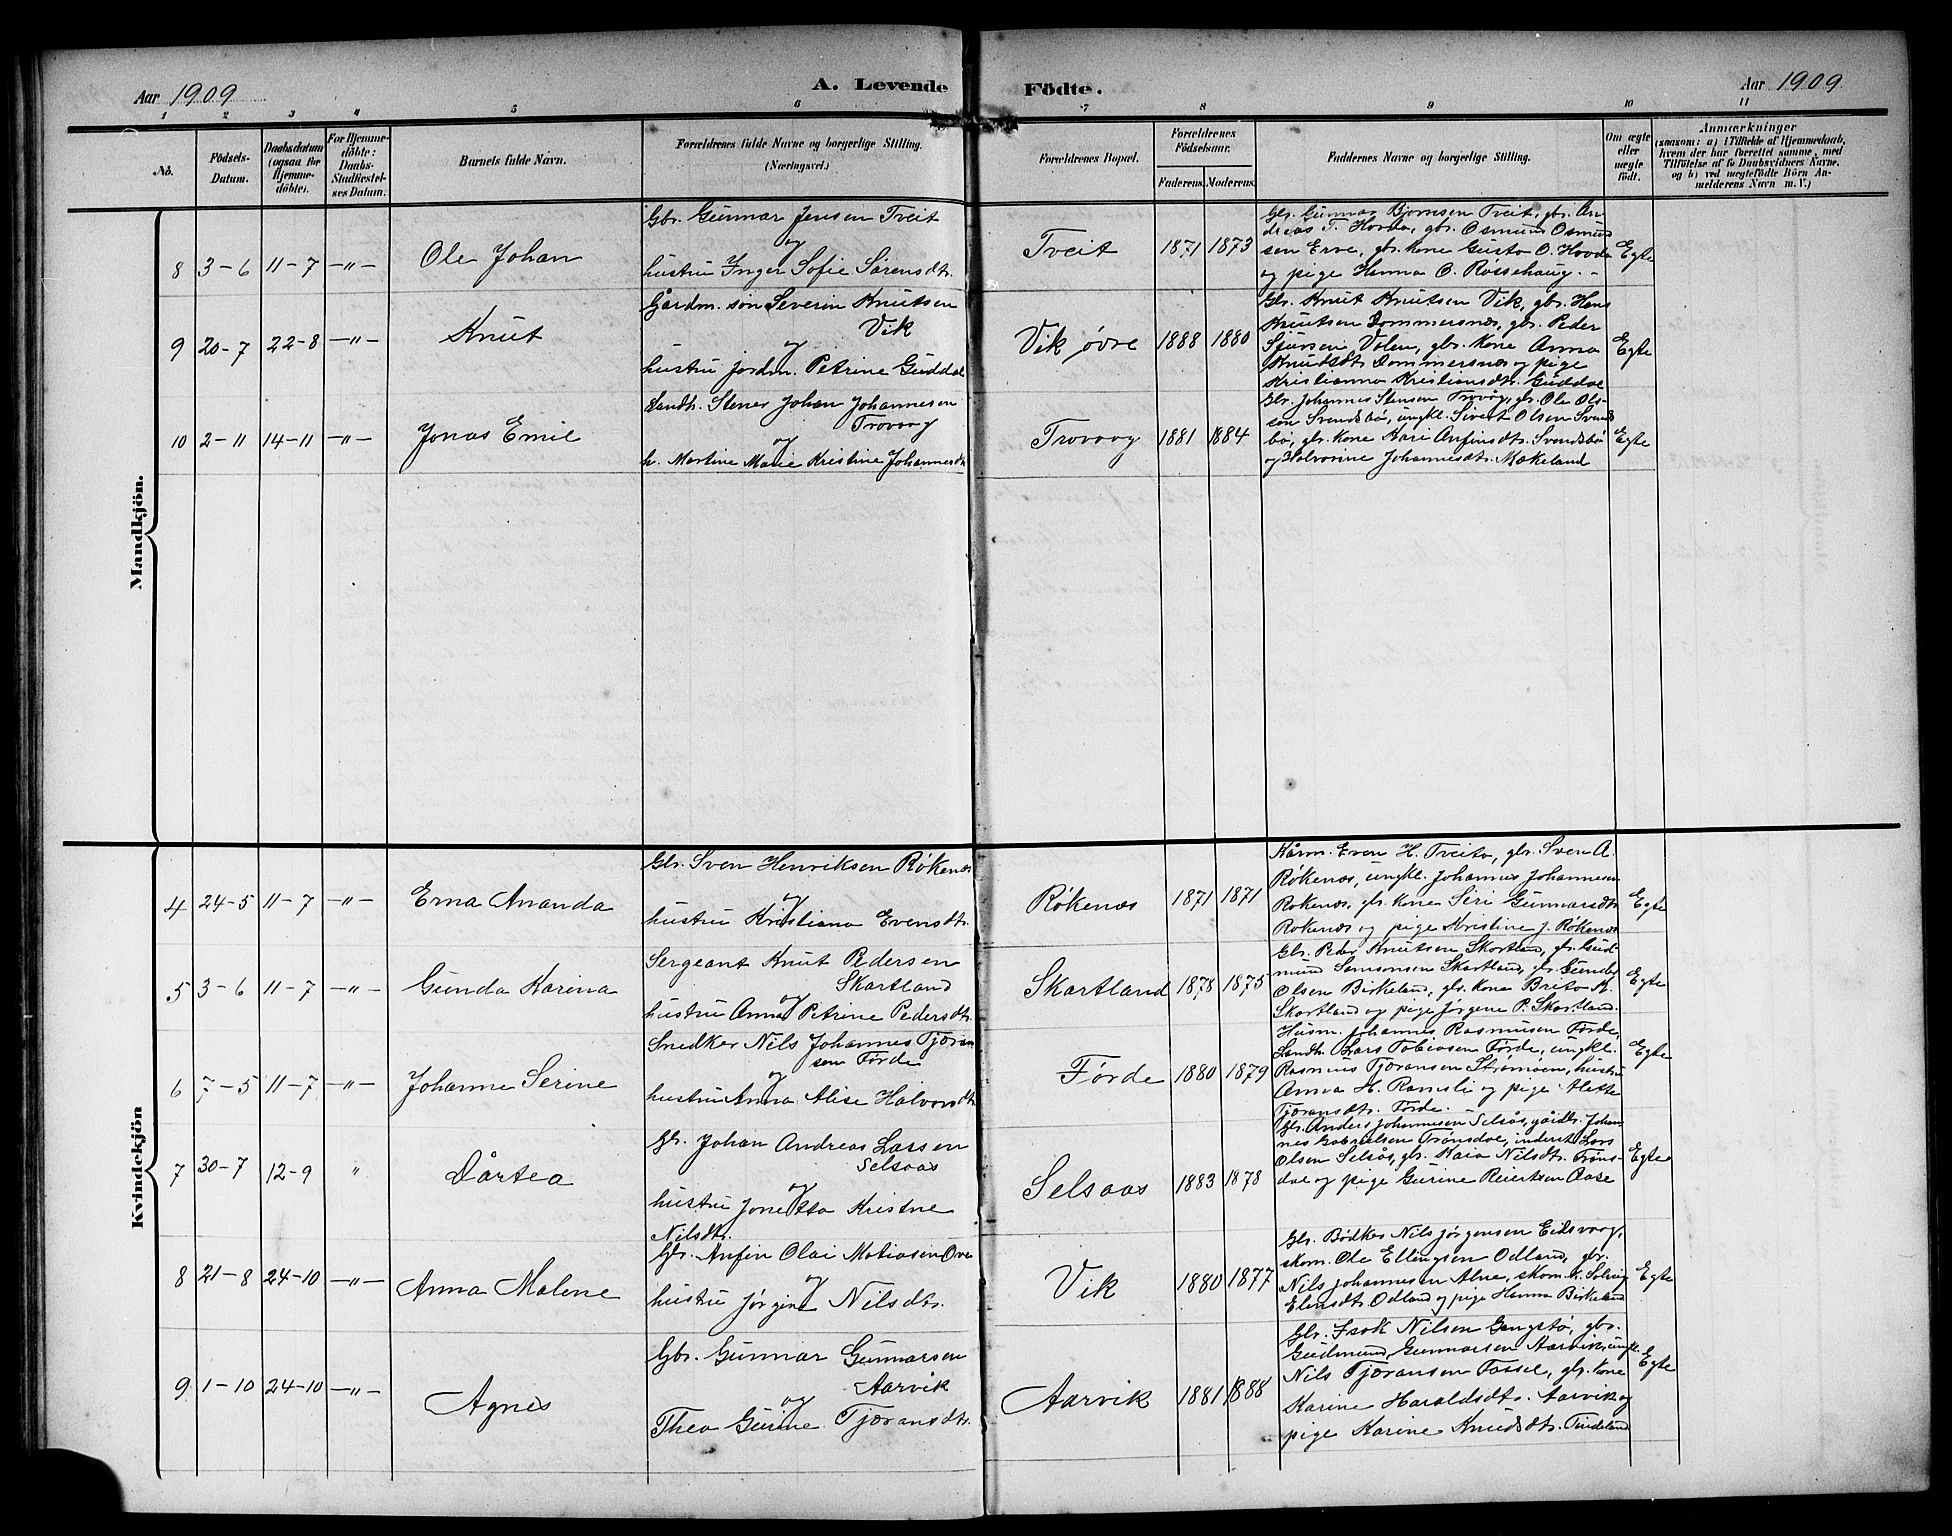 Aar 1909
A. Levende
Födte.
Aar 1909
1 2 3 4 5 6 7 8 9 10 11
No.
Födsels-
Datum.
Daabsdatum
(ogsaa for
Hjemme-
döbte).
For Hjemme-
döbte:
Daabs-
Stadfæstel-
ses Datum.
Barnets fulde Navn.
Forældrenes fulde Navne og borgerlige Stilling.
(Næringsvei.)
Forældrenes Bopæl.
Forældrenes
Födselsaar.
Faderens. Moderens.
Faddernes Navne og borgerlige Stilling.
Om ægte
eller
uægte
födt.
Anmærkninger
(saasom: a) i Tilfælde af Hjemmedaab,
hvem der har forrettet samme, med
Tilföielse af to Daabsvidners Navne,
og b) ved uægtefödte Börn An-
melderens Navn m. V.)
Mandkjön.
8 3-6 11-7 -"- Ole Johan
Gbr. Gunnar Jensen Tveit
og
hustru Inger Sofie Sørensdt.
Tveit 1871 1873
Gbr. Gunnar Bjørnsen Tveit, gbr. An-
dreas T. Hovda, gbr. Osmund Osmund
sen Erve, gbr. kone Gusta O. Hovda
og pige Hanna O. Røssehaug. -
Egte
9 20-7 22-8 -"- Knut
Gårdm. søn Severin Knutsen
Vik
og
hustru jordm. Petrine Guddal
Vik øvre 1888 1880
Gbr. Knut Knutsen Vik, gbr. Hans
Knutsen Dommersnæs, gbr. Peder
Sjursen Valen, gbr. kone Anna
Knudsdt. Dommersnæs og pige
Kristianna Kristiansdt. Guddal
Egte
10 2-11 14-11 -"- Jonas Emil
Landh. Stener Johan Johannesen
Trovaag
og
h. Martine Marie Kristine Johannesdt.
Trovaag 1881 1884
Gbr. Johannes Stensen Trovåg, gbr. Ole Ols-
søn Svendsbø, ungkl. Sivert Olsen Svends
bø, gbr. kone Kari Anfinsdt. Svendsbø
og Halvorine Johannesdt. Mækeland
Egte
Kvindekjön
4 24-5 11-7 -"- Erna Amanda
Gbr. Sven Henriksen Røkenæs
og
hustru Kristiana Evensdt.
Røkenæs 1871 1871
Kårm. Even H. Tveita, gbr. Sven A.
Røkenæs, ungkl. Johannes Johannesen
Røkenæs, gbr. kone Siri Gunnarsdt.
Røkenæs og pige Kristine J. Røkenæs
Egte
5 3-6 11-7 -"- Gunda Karina
Sergeant Knut Pedersen
Skartland
og
hustru Anna Petrine Pedersdt.
Skartland 1878 1875
Gbr. Peder Knutsen Skartland, gbr. Gud-
mund Samsonsen Skartland, gbr. Gunder
Olsen Birkeland, gbr. kone Brita K.
Skartland og pige Jørgene P. Skartland.
Egte
6 7-5 11-7 -"- Johanne Serine
Snedker Nils Johannes Tjøran
sen Førde
og
hustru Anna Alise Halvorsdt.
Førde 1880 1879
Husm. Johannes Rasmusen Førde,
Landh. Lars Tobiasen Førde, ungkl.
Rasmus Tjøransen Strømøen, hustru
Anna H. Ramsli og pige Alette
Tjøransdt. Førde.
Egte
7 30-7 12-9 " Dårtea
Gbr. Johan Andreas Larsen
Selsaas
og
hustru Jonetta Kristne
Nilsdt.
Selsaas 1883 1878
Gbr. Anders Johannesen Selsås, gåidbr. Johan-
nes Gabrielsen Trønsdal, inderst Lars
Olsen Selsås, gbr. Kaia Nilsdt. Trøns-
dal og pige Gurine Reiertsen Aase
Egte
8 21-8 24-10 -"- Anna Malene
Gbr. Anfin Olai Matiasen Øvre
og
hustru Jørgine Nilsdt.
Vik 1880 1877
Gbr. Bødker Nils Jørgensen Eidsvaag,
skom. Ole Ellingsen Odland, gbr.
Nils Johannesen Alne, skom. k. Solvig
Elensdt. Odland og pige Hanna Birkeland
Egte
9 1-10 24-10 -"- Agnes
Gbr. Gunnar Gunnarsen
Aarvik
og
Thea Gurine Tjøransdt.
Aarvik 1881 1888
Gbr. Isak Nilsen Gangstø, gbr.
Gudmund Gunnarsen Aarvik, ungk.
Nils Tjøransen Fosse, gbr. kone
Karine Haraldsdt. Aarvik og
pige Karine Knudsdt. Tindeland
Egte